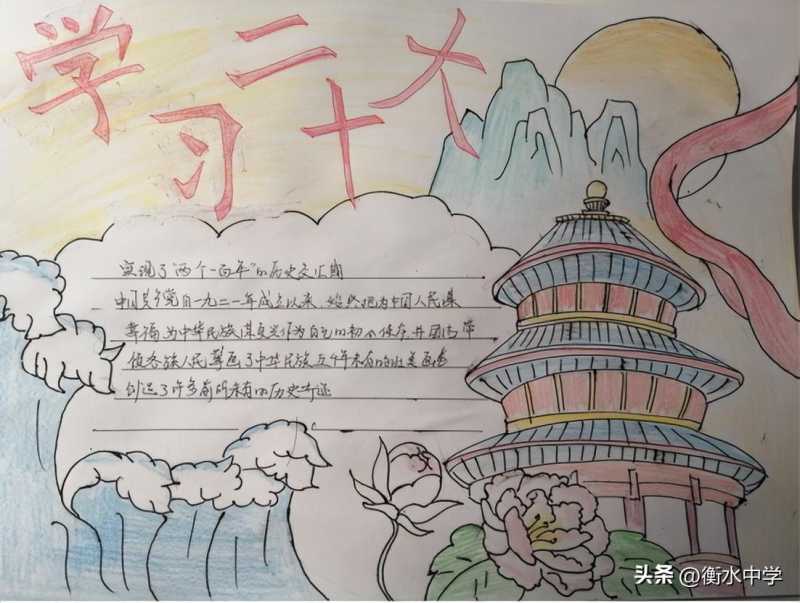 学习二十大
实现了“两个一百年”的历史交汇期
中国共产党自一九二一年成立以来,始终把为中国人民谋
幸福为中华民族谋复兴作为自己的初心使命,并团结带
领各族人民擘画了中华民族五千年未有的壮美画卷
创造了许多前所未有的历史奇迹
头条 @衡水中学